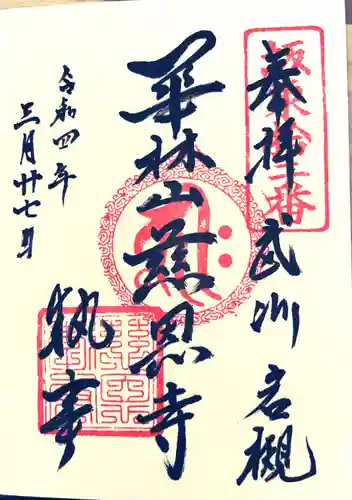 奉拝 武州岩槻
坂東拾二番
華林山慈恩寺
執事
令和四年
三月廿七日